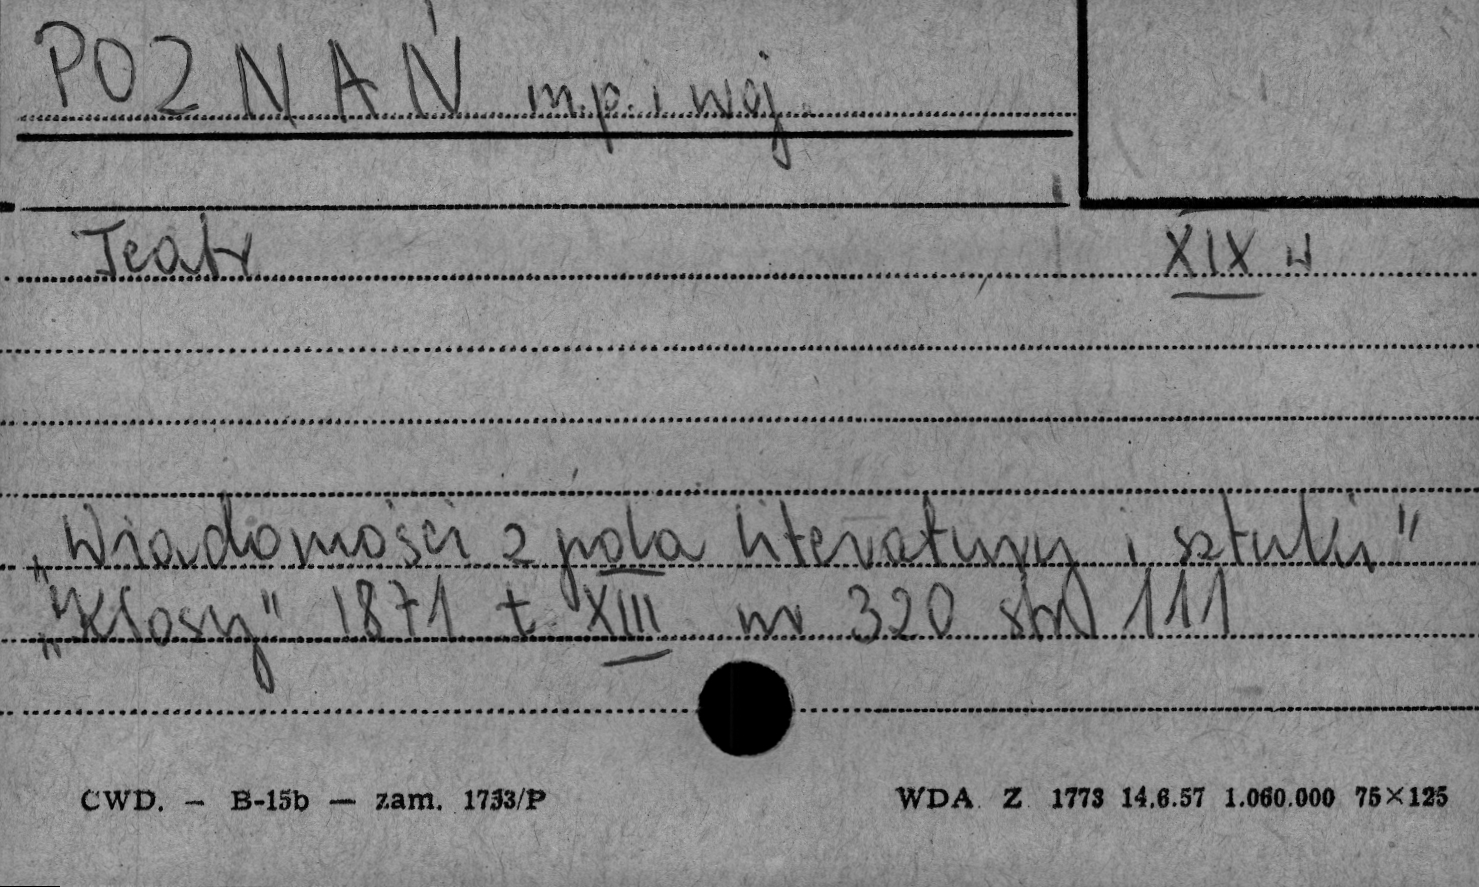 POZNAŃ m.p. i woj.
Teatr XIX w
„Wiadomości z pola literatury i sztuki"
„Kłosy" 1871 t. XIII nr 320 str 111
CWD. — B-15b — zam. 1733/P WDA Z 1773 14.6.57 1.060.000 75×125